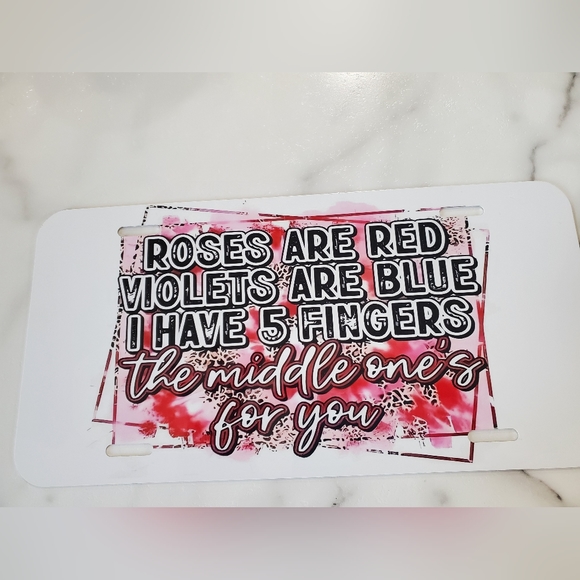 ROSES ARE RED
VIOLETS ARE BLUE
I HAVE 5 FINGERS
the middle one's
for you